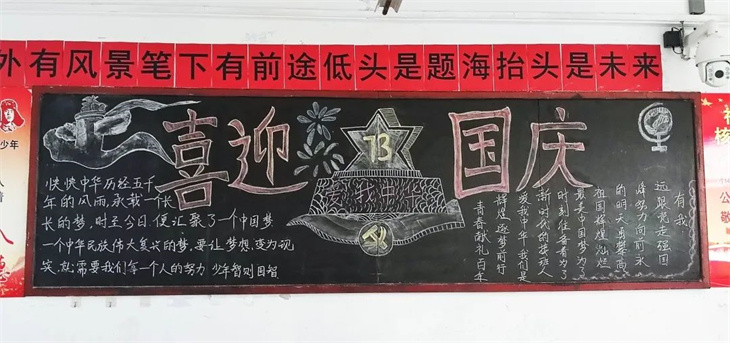 外有风景笔下有前途低头是题海抬头是未来
喜迎
73
国庆
爱我中华
快快中华历经五千
年的风雨,承载一个长
长的梦,时至今日,便汇聚了一个中国梦
一个中华民族伟大复兴的梦,要让梦想变为现
实,就需要我们每一个人的努力 少年智则国智
有我
远跟党走强国
峰努力向前永
的明天勇攀高
祖国辉煌灿烂
最美中国梦为了
时刻准备着为了
新时代的接班人
爱我中华我们是
辉煌逐梦前行
青春献礼百年
少年